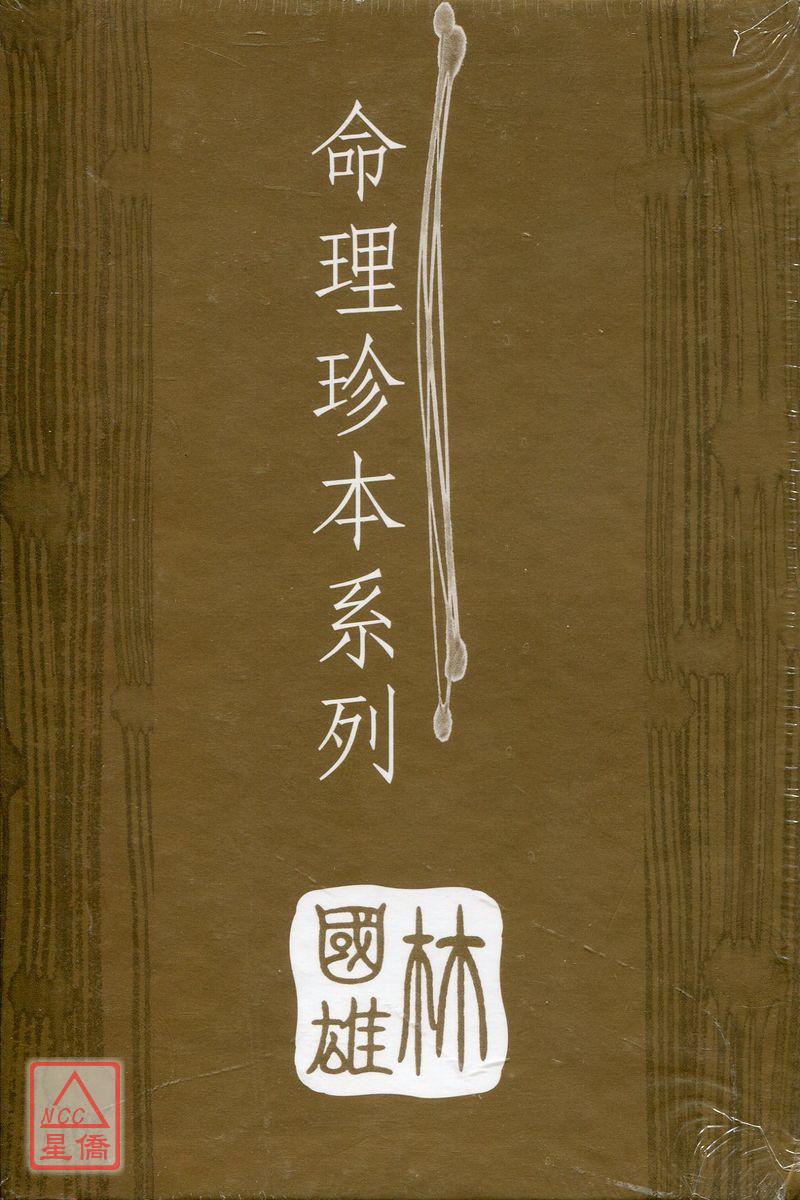 命理珍本系列
林國雄
NCC
星僑